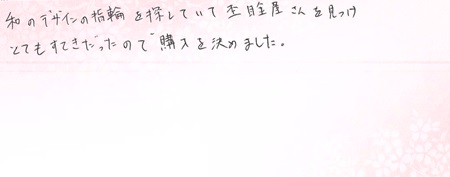 和のデザインの指輪を探していて杢目金屋さんを見つけ
とてもすてきだったので購入を決めました。